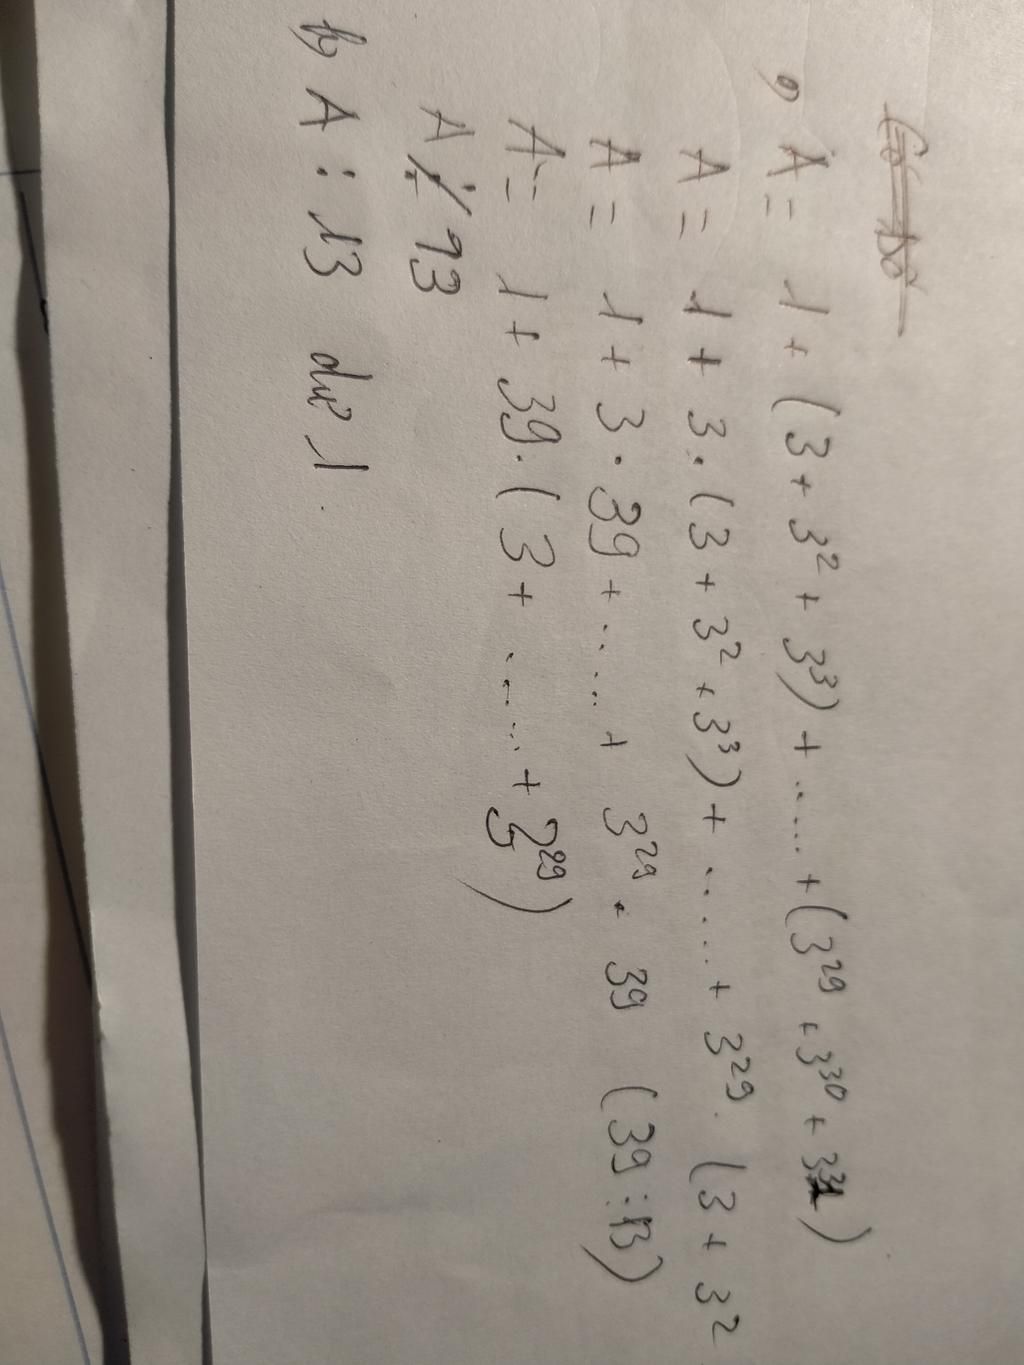 A = 1 + (3 + 3² + 3³) + ...... + (3²⁹ + 3³⁰ + 3³¹)
A = 1 + 3 . (3 + 3² + 3³) + ...... + 3²⁹ . (3 + 3²
A = 1 + 3 . 39 + ..... + 3²⁹ . 39 (39 ⋮ 13)
A = 1 + 39 . (3 + ...... + 3²⁹)
A ⋮̸ 13
b, A : 13 dư 1